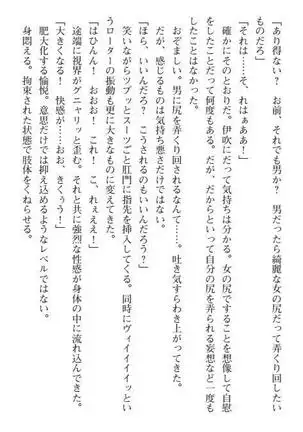 「あり得ない？　お前、それでも男か？　男だったら綺麗な女の尻だって弄くり回したい
ものだろ」
「それは……そ、れはぁぁあ！」
　確かにそのとおりだ。伊吹にだって気持ちは分かる。女の尻ですることを想像して自慰
をしたことだって何度もある。だが、だからといって自分の尻を弄られる妄想など一度も
したことはなかった。
　だが、感じるものは気持ち悪さだけではない。
　おぞましい。男に尻を弄くり回されるなんて……。吐き気すらわき上がってきた。
「ほら、いいんだろ？　こうされるのもいいんだろう？」
　笑いながらツプッとスーツごと肛門に指先を挿入してくる。同時にヴィイイイイッとい
うローターの振動も更に大きなものに変えてきた。
「はひんん！　おおお！　これ！　こ、れぇえぇ！」
　途端に視界がグニャリッと歪む。それと共に強烈な性感が身体の中に流れ込んできた。
「大きくなる！　快感が……おお、きくぅう！」
　肥大化する愉悦。意思だけでは抑え込めるようなレベルではない。
　身悶える。拘束された状態で肢体をくねらせる。